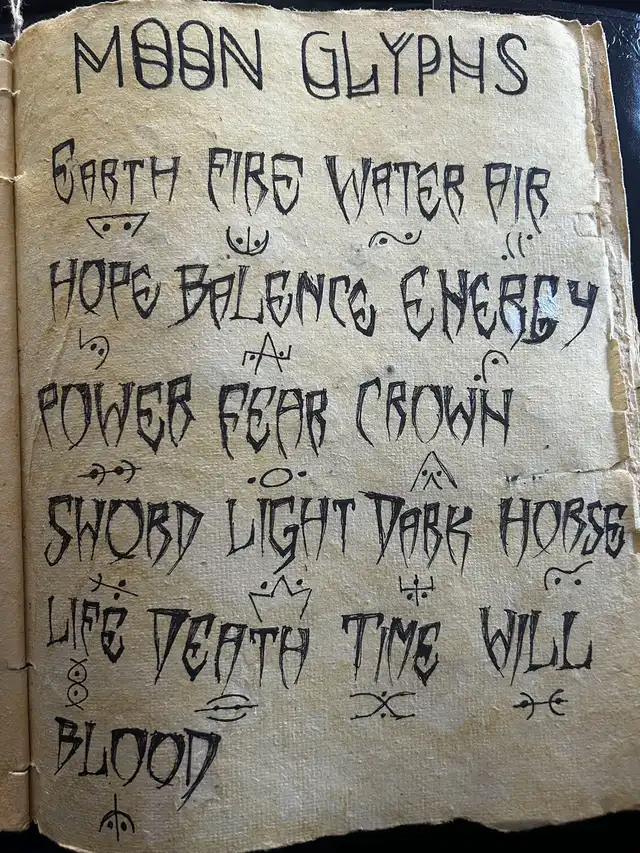 MOON GLYPHS
EARTH FIRE WATER AIR
HOPE BALENCE ENERGY
POWER FEAR CROWN
SWORD LIGHT DARK HORSE
LIFE DEATH TIME WILL
BLOOD